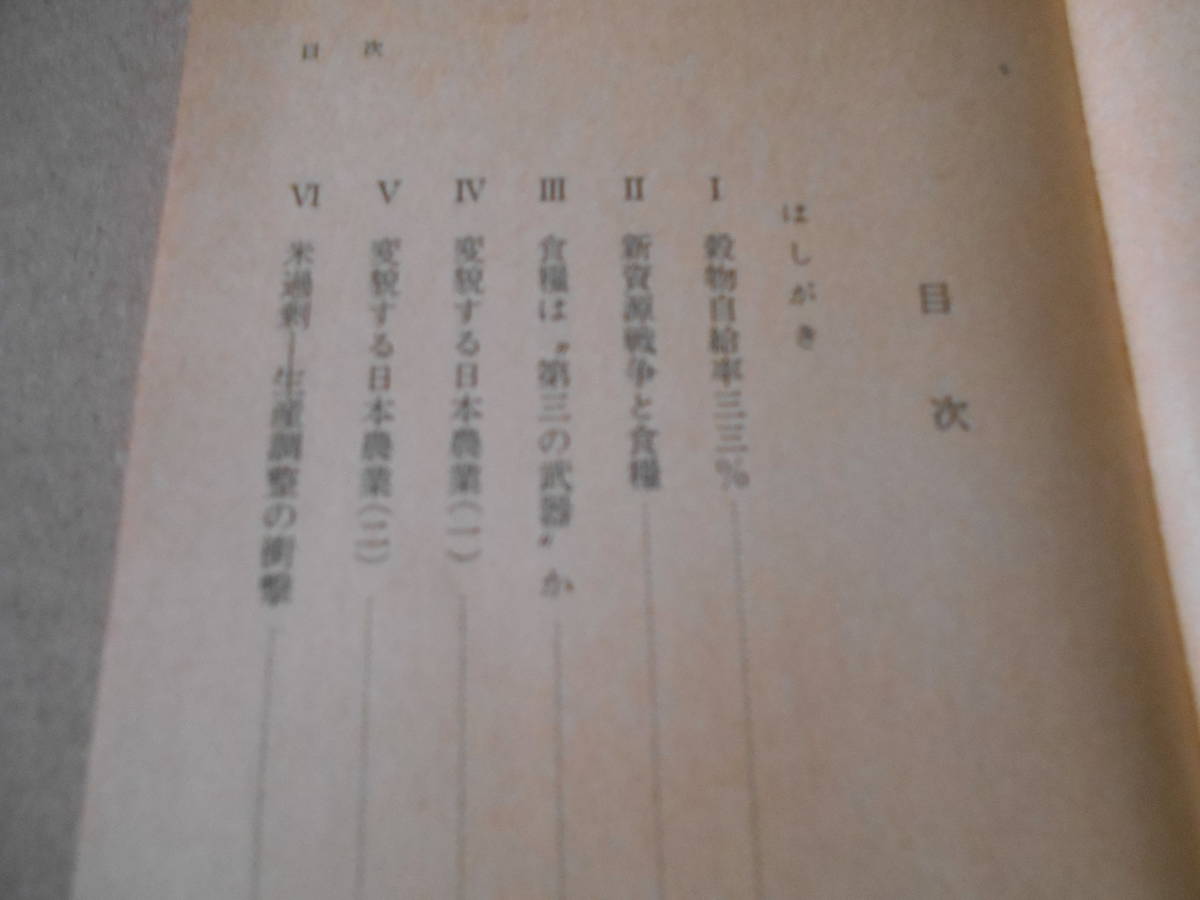 目次
はしがき
Ⅰ 穀物自給率三三%
Ⅱ 新資源戦争と食糧
Ⅲ 食糧は〝第三の武器〟か
Ⅳ 変貌する日本農業(一)
Ⅴ 変貌する日本農業(二)
Ⅵ 米過剰―生産調整の衝撃
目次